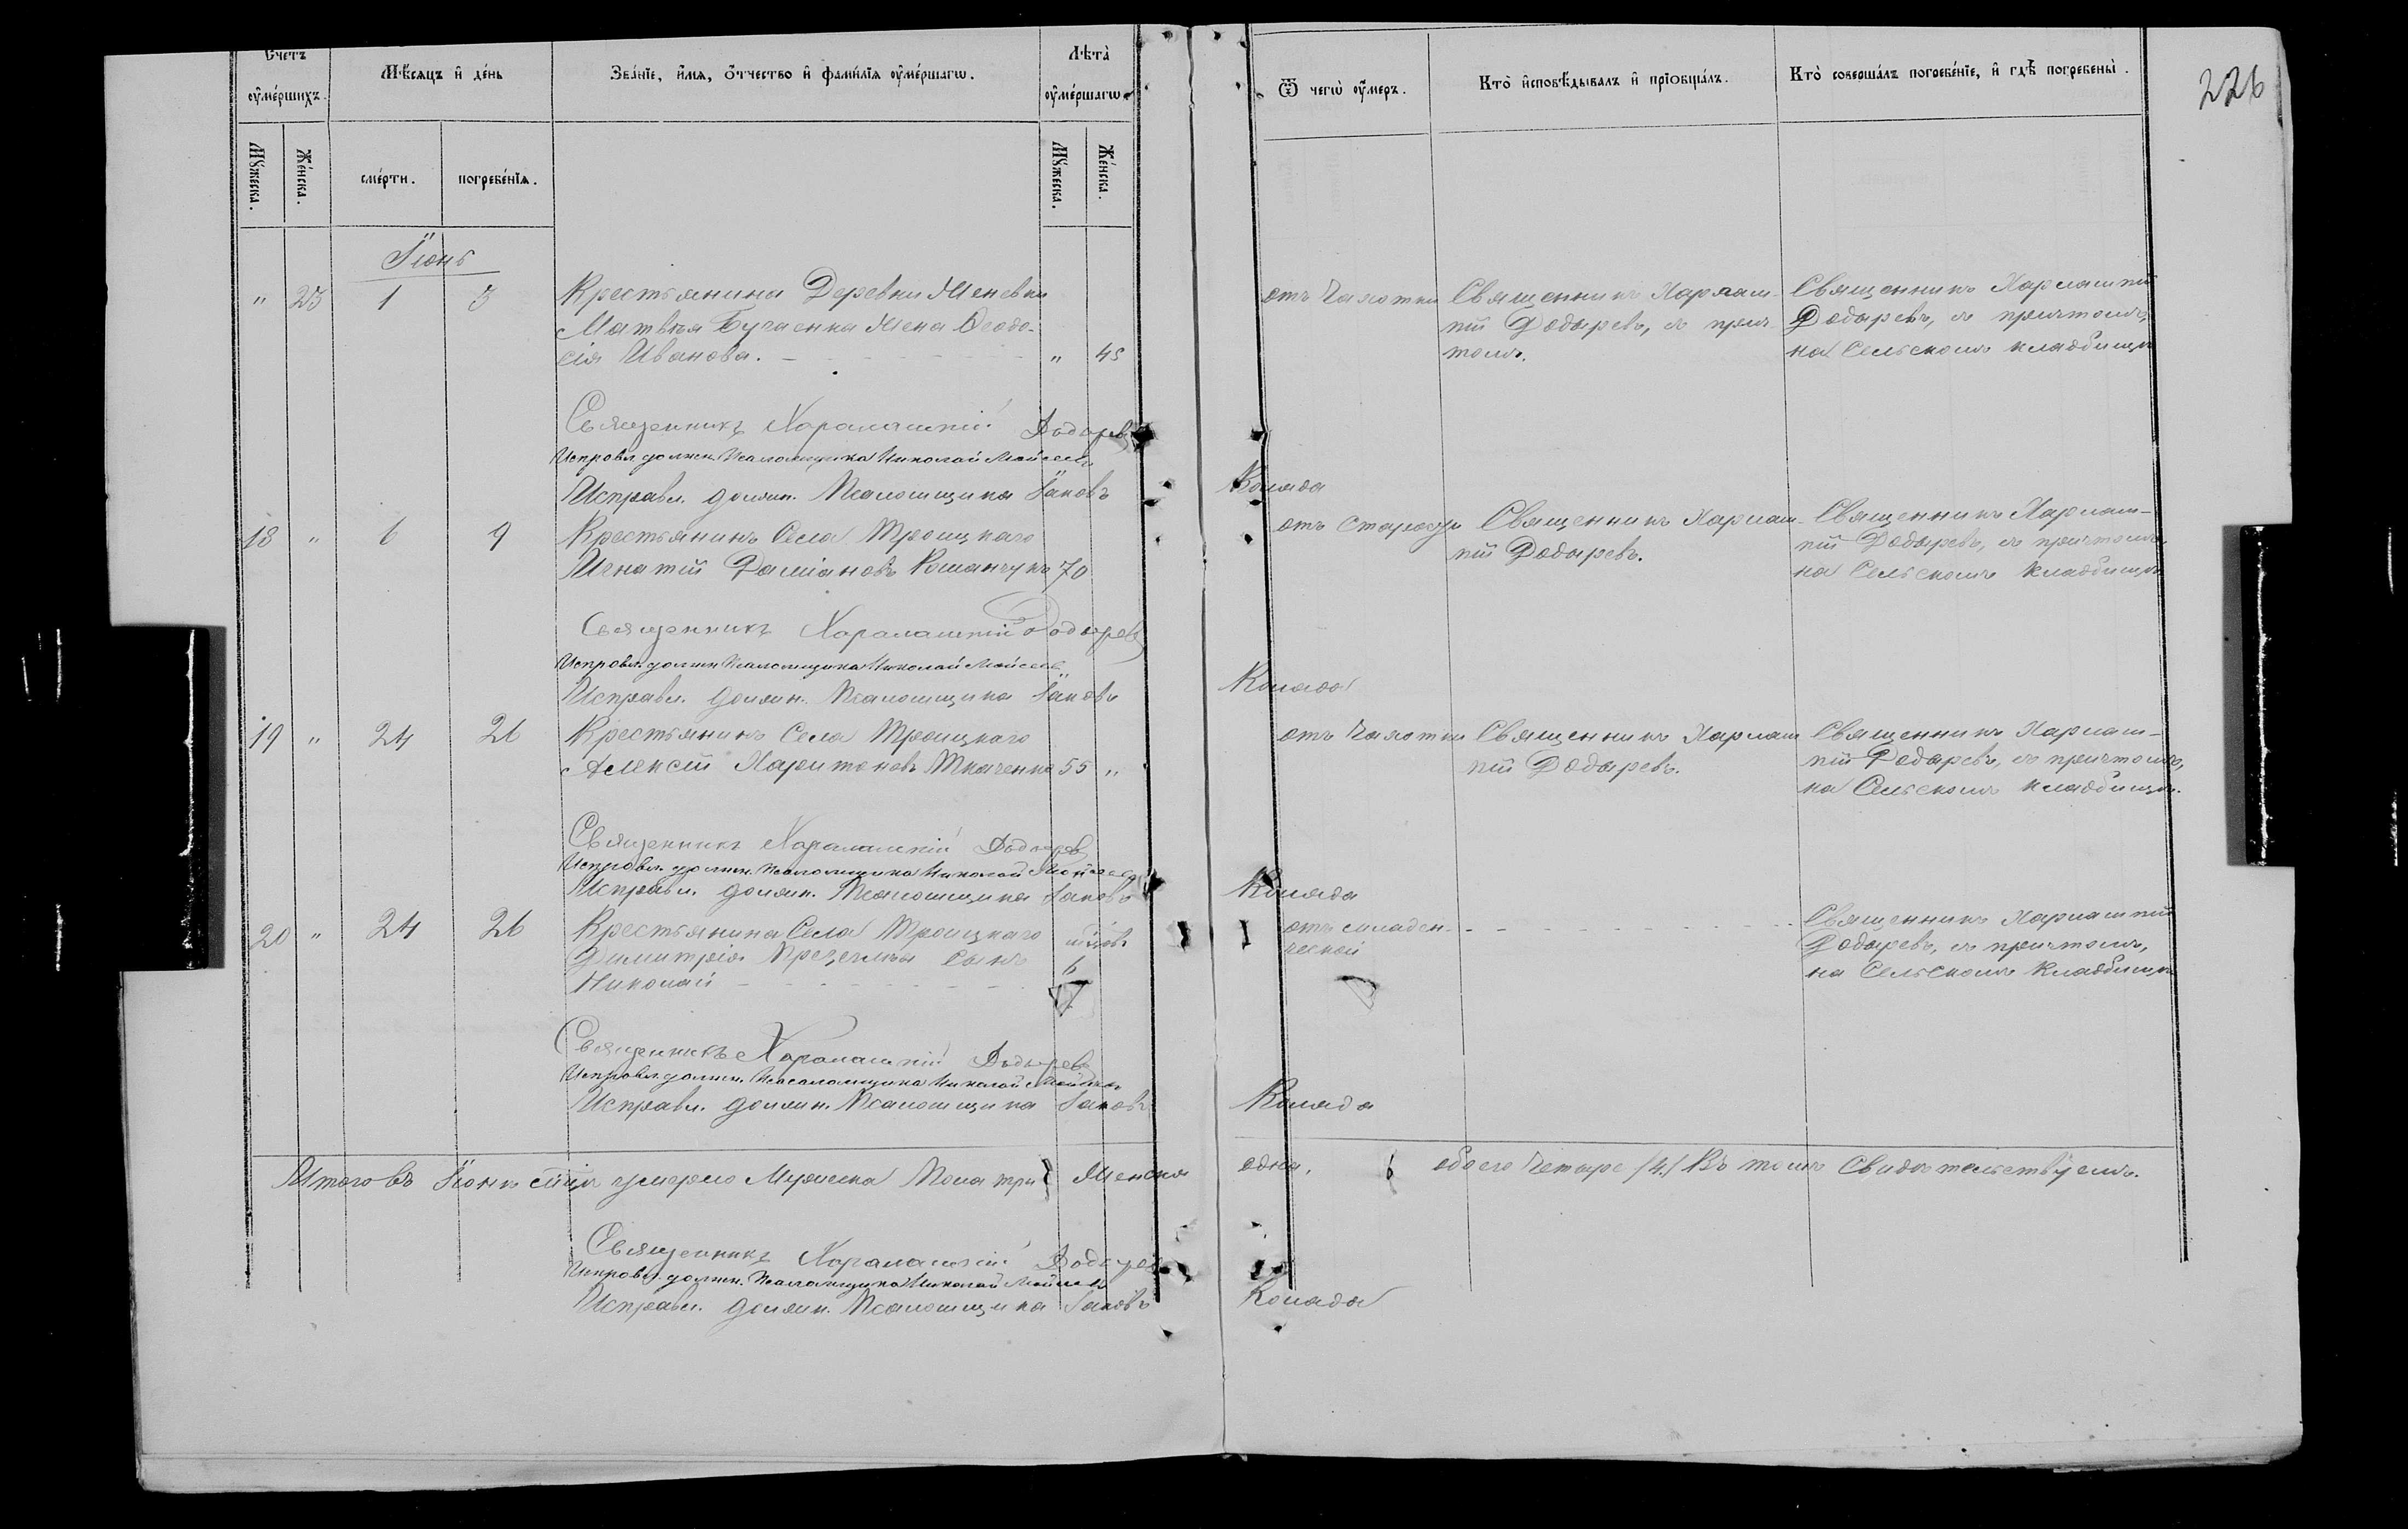 Счетъ оумершихъ.
Мѣсяцъ и день
Званіе, имя, отчество и фамилія оумершагω.
Лѣта оумершагω.
Ѿ чегω оумеръ.
Кто исповѣдывалъ и пріобщалъ.
Кто совершалъ погребеніе, и гдѣ погребены.
226
Мужеска.
Женска.
смерти.
погребенія.
Мужеска.
Женска.
Іюнь
" 23 1 3 Крестьянина Деревни
Матвѣя жена Ѳеодо-
сія Иванова. " 45
отъ Чахотки
Священникъ Харлам-
пій Додыревъ, съ прич-
томъ.
Священникъ Харлампій
Додыревъ, съ причтомъ,
на Сельскомъ кладбищѣ
Священникъ Харалампій Додыревъ
Исправл. должн. Псаломщика Николай Мойсеевъ
Исправл. должн. Псаломщика Іаковъ Коляда
18 " 6 9 Крестьянинъ Села Троицкаго
Игнатій Даміановъ Романчукъ 70
отъ старости
Священникъ Харлам-
пій Додыревъ.
Священникъ Харлам-
пій Додыревъ, съ причтомъ,
на Сельскомъ кладбищѣ
Священникъ Харалампій Додыревъ
Исправл. должн. Псаломщика Николай Мойсеевъ
Исправл. должн. Псаломщика Іаковъ Коляда
19 " 24 26 Крестьянинъ Села Троицкаго
Алексій Харитоновъ Ткаченко 55 "
отъ Чахотки
Священникъ Харлам
пій Додыревъ.
Священникъ Харлам-
пій Додыревъ, съ причтомъ,
на Сельскомъ кладбищѣ.
Священникъ Харалампій Додыревъ
Исправл. должн. Псаломщика Николай Мойсеевъ
Исправл. должн. Псаломщика Іаковъ Коляда
20 " 24 26 Крестьянина Села Троицкаго
Димитрія сынъ
Николай 6
отъ младен-
ческой
Священникъ Харлампій
Додыревъ, съ причтомъ,
на Сельскомъ кладбищѣ
Священникъ Харалампій Додыревъ
Исправл. должн. Псаломщика Николай Мойсеевъ
Исправл. должн. Псаломщика Іаковъ Коляда
Итого въ Іюнѣ мцѣ умерло Мужеска Пола три Женска одна, обоего Четыре /4./ Въ томъ Свидѣтельствуемъ.
Священникъ Харалампій Додыревъ
Исправл. должн. Псаломщика Николай Мойсеевъ
Исправл. должн. Псаломщика Іаковъ Коляда